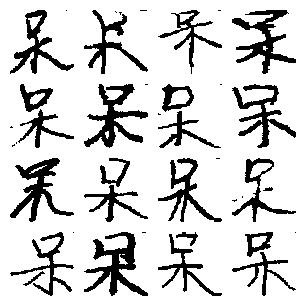 呆呆呆呆
呆呆呆呆
呆呆呆呆
呆呆呆呆